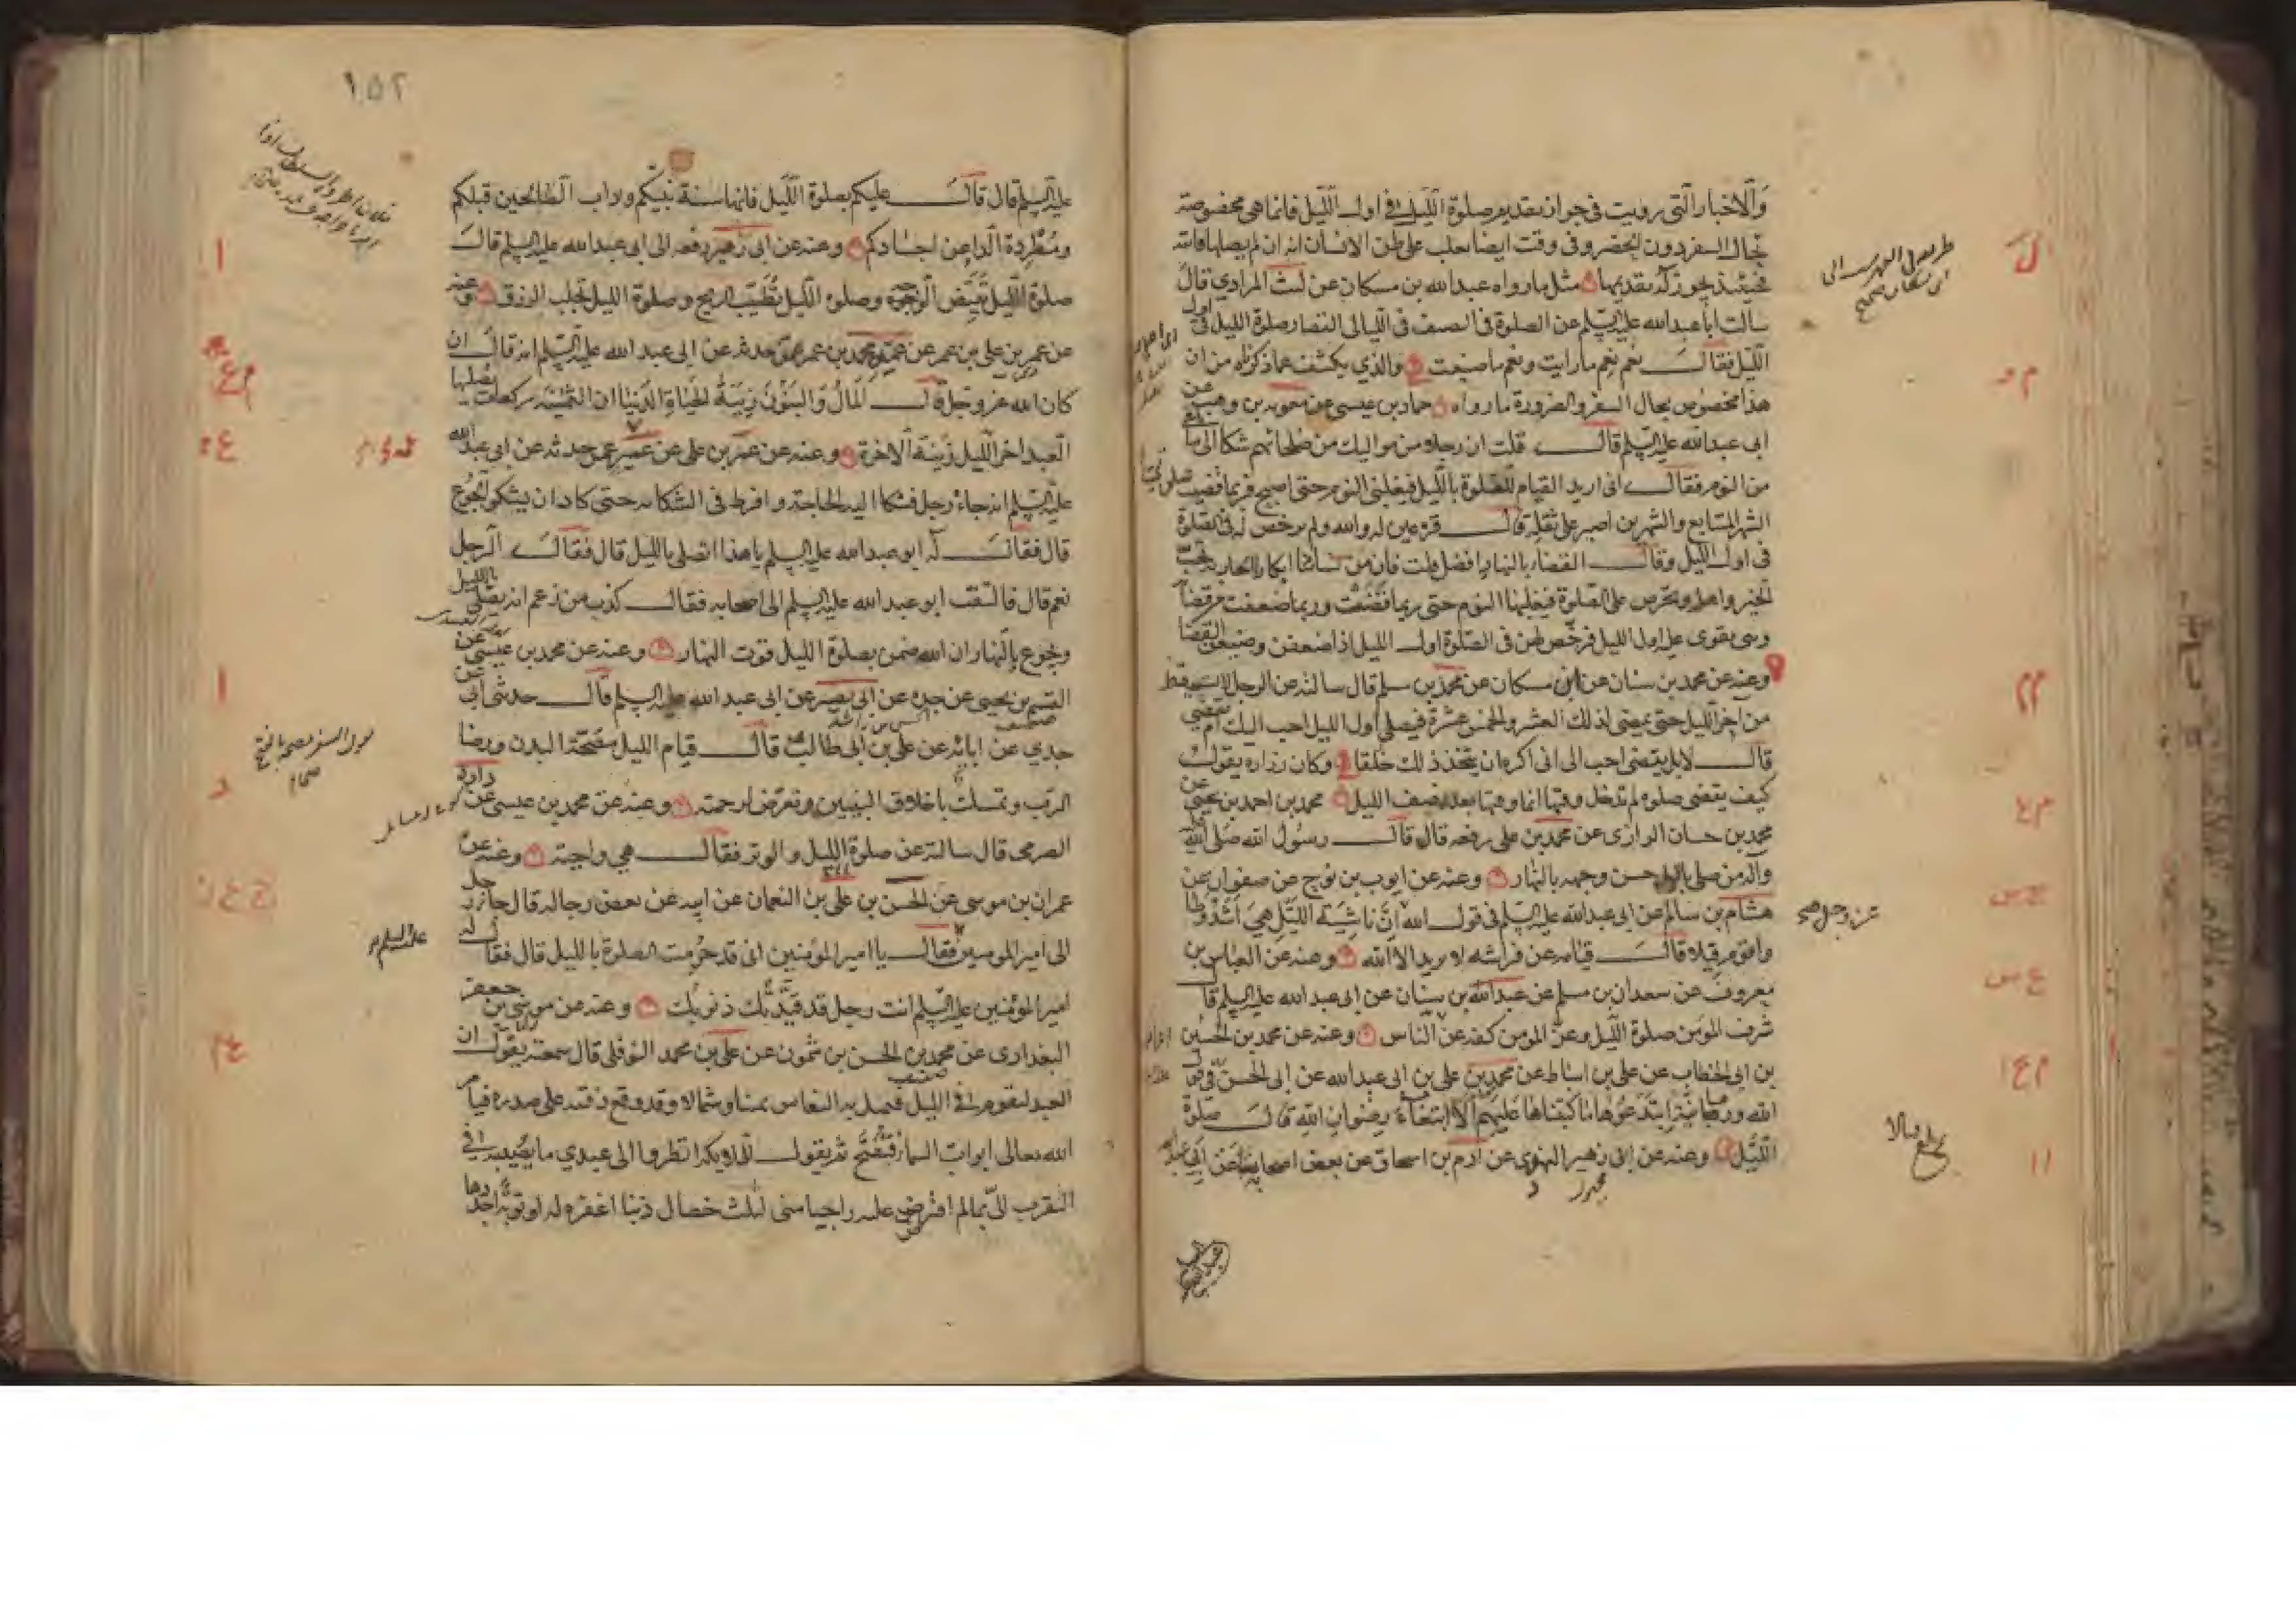 والاخبار التي رويت في جواز تقديم صلوة الليل في اول الليل فانما هي مخصوصة
بحال السفر دون الحضر وفي وقت ايضا يغلب على ظن الانسان انه ان لم يصلها فاتته
فحينئذ يجوز له تقديمها مثل ما رواه عبد الله بن مسكان عن ليث المرادي قال
سالت ابا عبد الله عليه السلم عن الصلوة في الصيف في الليالي القصار صلوة الليل في اول
الليل فقال نعم نعم ما رايت ونعم ما صنعت والذي يكشف عما ذكرناه من ان
هذا مخصوص بحال السفر والضرورة ما رواه حماد بن عيسى عن معوية بن وهب عن
ابي عبد الله عليه السلم قال قلت ان رجلا من مواليك من صلحائهم شكا الى ما يلقى
من النوم فقال اني اريد القيام للصلوة بالليل فيغلبني النوم حتى اصبح فربما قضيت صلوتي
الشهر المتتابع والشهرين اصبر على ثقله قال قرة عين له والله ولم يرخص له في الصلوة
في اول الليل وقال القضاء بالنهار افضل قلت فان من نسائنا ابكارا الجارية تحب
الخير واهله وتحرص على الصلوة فيغلبها النوم حتى ربما قضت وربما ضعفت عن قضائه
وهي تقوى عليه اول الليل فرخص لهن في الصلوة اول الليل اذا ضعفن وضيعن القضا
وعنه عن محمد بن سنان عن ابن مسكان عن محمد بن مسلم قال سالته عن الرجل لا يستيقظ
من آخر الليل حتى يمضي لذلك العشر والخمس عشرة فيصلي اول الليل احب اليك ام يقضي
قال لا بل يقضي احب الى اني اكره ان يتخذ ذلك خلقا وكان زراره يقول
كيف يقضى صلوة لم تدخل وقتها انما وقتها بعد نصف الليل محمد بن احمد بن يحيى عن
محمد بن حسان الرازي عن محمد بن علي رفعه قال قال رسول الله صلى الله عليه
واله من صلى بالليل حسن وجهه بالنهار وعنه عن ايوب بن نوح عن صفوان عن
هشام بن سالم عن ابي عبد الله عليه السلم في قول الله ان ناشئة الليل هي اشد وطا
واقوم قيلا قال قيامه عن فراشه لا يريد الا الله وعنه عن العباس بن
معروف عن سعدان بن مسلم عن عبد الله بن سنان عن ابي عبد الله عليه السلم قال
شرف المومن صلوة الليل وعز المومن كفه عن الناس وعنه عن محمد بن الحسين
بن ابي الخطاب عن علي بن اسباط عن محمد بن علي بن ابي عبد الله عن ابي الحسن في قول
الله ورهبانية ابتدعوها ما كتبناها عليهم الا ابتغاء رضوان الله قال صلوة
الليل وعنه عن ابي زهير النهدي عن آدم بن اسحاق عن بعض اصحابنا عن ابي عبد الله
عز وجل صح
١٥٢
عليه السلم قال قال عليكم بصلوة الليل فانها سنة نبيكم وداب الصالحين قبلكم
ومطردة الداء عن اجسادكم وعنه عن ابي زهير رفعه الى ابي عبد الله عليه السلم قال
صلوة الليل تبيض الوجوه وصلوة الليل تطيب الريح وصلوة الليل تجلب الرزق وعنه
عن عمر بن علي بن عمر عن عمه محمد بن عمر عمن حدثه عن ابي عبد الله عليه السلم انه قال ان
كان الله عز وجل قال المال والبنون زينة الحياة الدنيا ان الثمنية ركعات يصليها
العبد اخر الليل زينة الاخرة وعنه عن عمر بن علي عن عمه عمن حدثه عن ابي عبد الله
عليه السلم انه جاءه رجل فشكا اليه الحاجة وافرط في الشكاية حتى كاد ان يشكو الجوع
قال فقال له ابو عبد الله عليه السلم يا هذا اتصلي بالليل قال فقال الرجل
نعم قال فالتفت ابو عبد الله عليه السلم الى اصحابه فقال كذب من زعم انه يصلي بالليل
ويجوع بالنهار ان الله ضمن بصلوة الليل قوت النهار وعنه عن محمد بن عيسى عن
القسم بن يحيى عن جده عن ابي بصير عن ابي عبد الله عليه السلم قال حدثني ابي عن
جدي عن ابائه عن علي بن ابي طالب قال قيام الليل مصحة البدن ورضا
الرب وتمسك باخلاق النبيين وتعرض لرحمته وعنه عن محمد بن عيسى عن داود
الصرمي قال سالته عن صلوة الليل والوتر فقال هي واجبة وعنه عن
عمران بن موسى عن الحسن بن علي بن النعمان عن ابيه عن بعض رجاله قال جاء رجل
الى امير المومنين فقال يا امير المؤمنين اني قد حرمت الصلوة بالليل قال فقال له
امير المؤمنين عليه السلم انت رجل قد قيدتك ذنوبك وعنه عن موسى بن جعفر
البغدادي عن محمد بن الحسن بن شمون عن علي بن محمد النوفلي قال سمعته يقول ان
العبد ليقوم في الليل فيميل به النعاس يمينا وشمالا وقد وقع ذقنه على صدره فيامر
الله تعالى ابواب السماء فتفتح ثم يقول للملائكة انظروا الى عبدي ما يصيبه في
التقرب الي بما لم افترض عليه راجيا مني لثلث خصال ذنبا اغفره له او توبة اجددها
عليه السلم